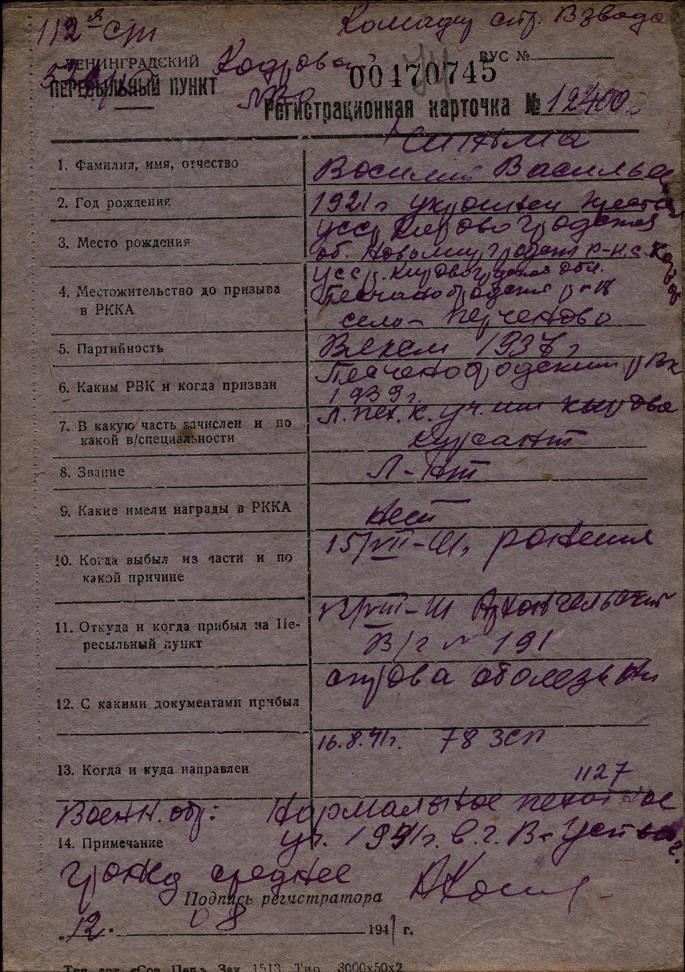 112 я с/п Командир стр. Взвода
ЛЕНИНГРАДСКИЙ Кадровой ВУС №
ПЕРЕСЫЛЬНЫЙ ПУНКТ 00470745
Регистрационная карточка № 12400
1. Фамилия, имя, отчество
Василий Василье
2. Год рождения 1921 г украинец
3. Место рождения УССР Кировоградская
об. р-н с.
4. Местожительство до призыва в РККА
УССР, Кировоградская обл.
Песчанобродский р-н
село
5. Партийность Влксм 1937 г
6. Каким РВК и когда призван Песчанобродским РВК
1939 г.
7. В какую часть зачислен и по какой в/специальности
Л. пех. к. уч-ще
курсант
8. Звание Л-нт
9. Какие имели награды в РККА нет
10. Когда выбыл из части и по какой причине 15/VII-41, ранения
11. Откуда и когда прибыл на Пересыльный пункт
12/VIII-41 Архангельский
В/г № 191
12. С какими документами прибыл справка о болезни
16.8.41г. 78 ЗСП
13. Когда и куда направлен 1127
Военн. обр: Нормальное пехотное
14. Примечание уч. 1941г. в г. В-Устюг
гражд среднее
Подпись регистратора
„12. 08 1941 г.
Тип. арт. «Сов. Печ.» Зак. 1513. Тир. 3000х50х2